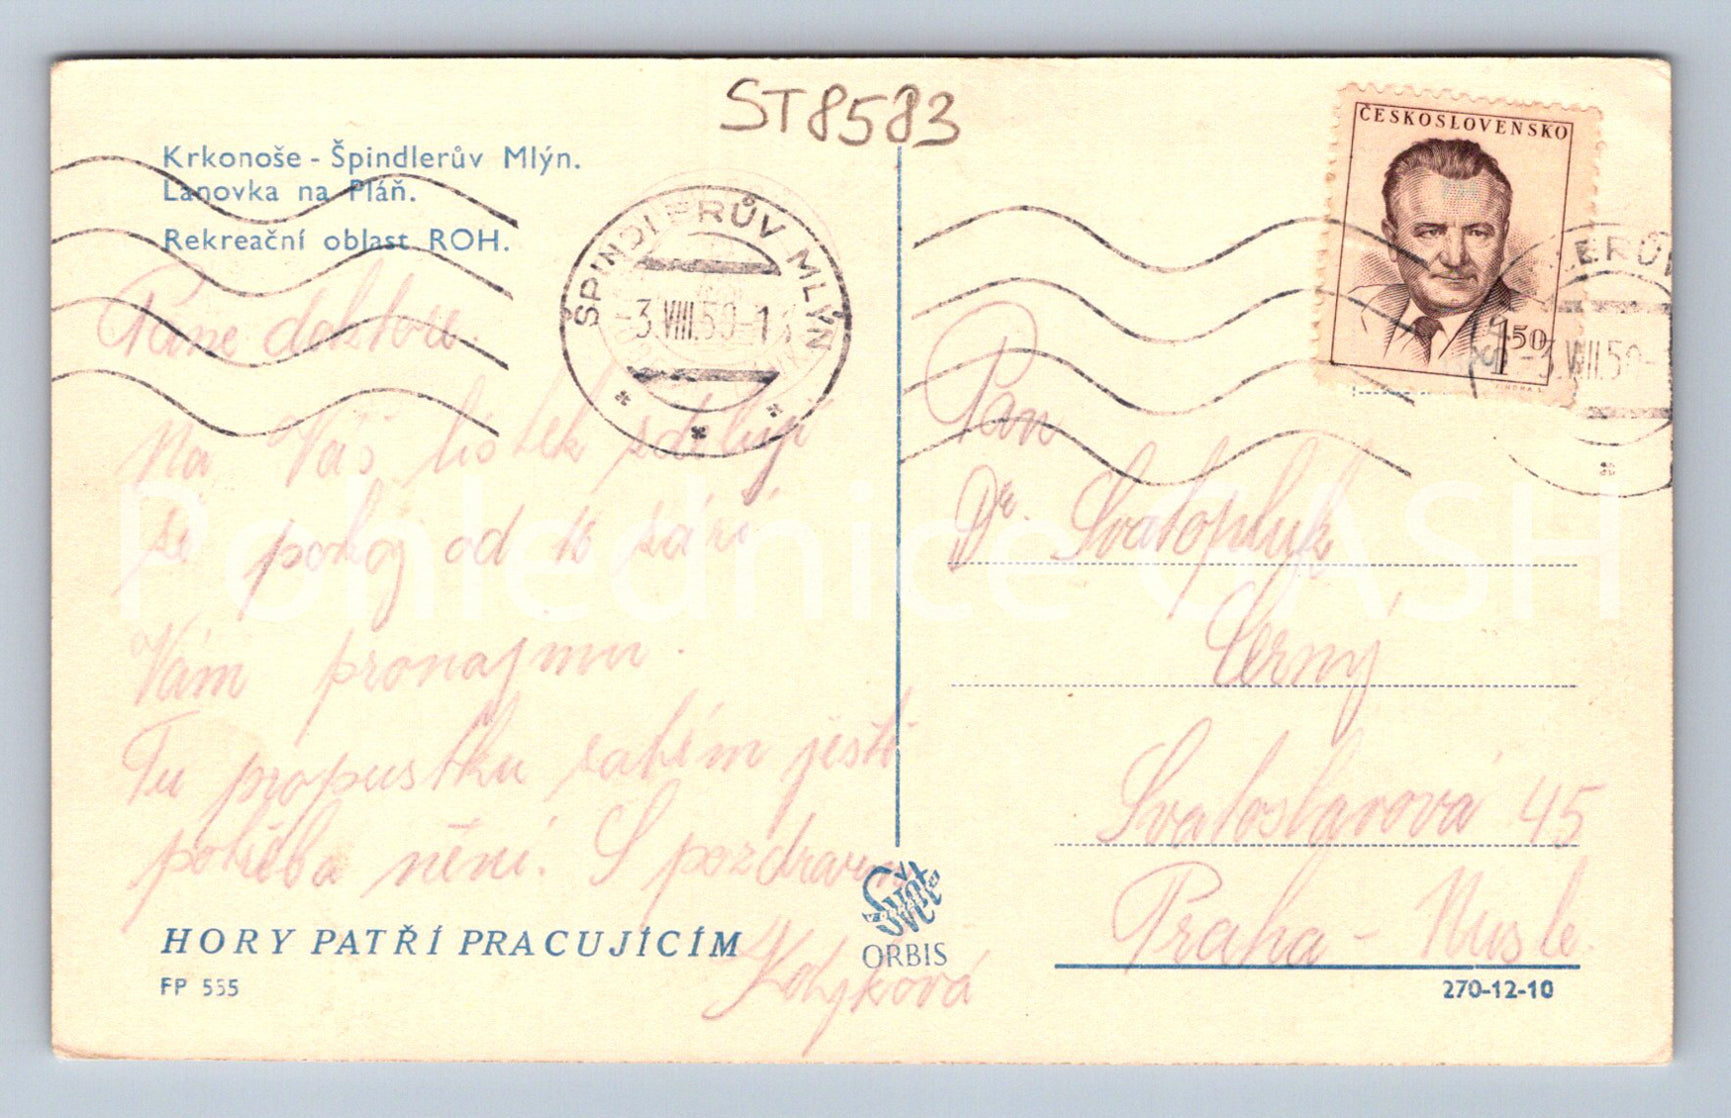 ST8583
Krkonoše - Špindlerův Mlýn.
Lanovka na Pláň.
Rekreační oblast ROH.
ČESKOSLOVENSKO
1.50
ŠPINDLERŮV MLÝN
-3.VIII.50-1
LERŮV
-3.VIII.50-
Pane doktore.
Na Váš lístek sděluji
že pokoj od 16 září
Vám pronajmu.
Tu propustku zatím ještě
potřeba není. S pozdravem
Pan
Dr. Svatopluk
Černý
Svatoslavova 45
Praha - Nusle.
Pohlednice CASH
HORY PATŘÍ PRACUJÍCÍM
FP 555
ORBIS
270-12-10